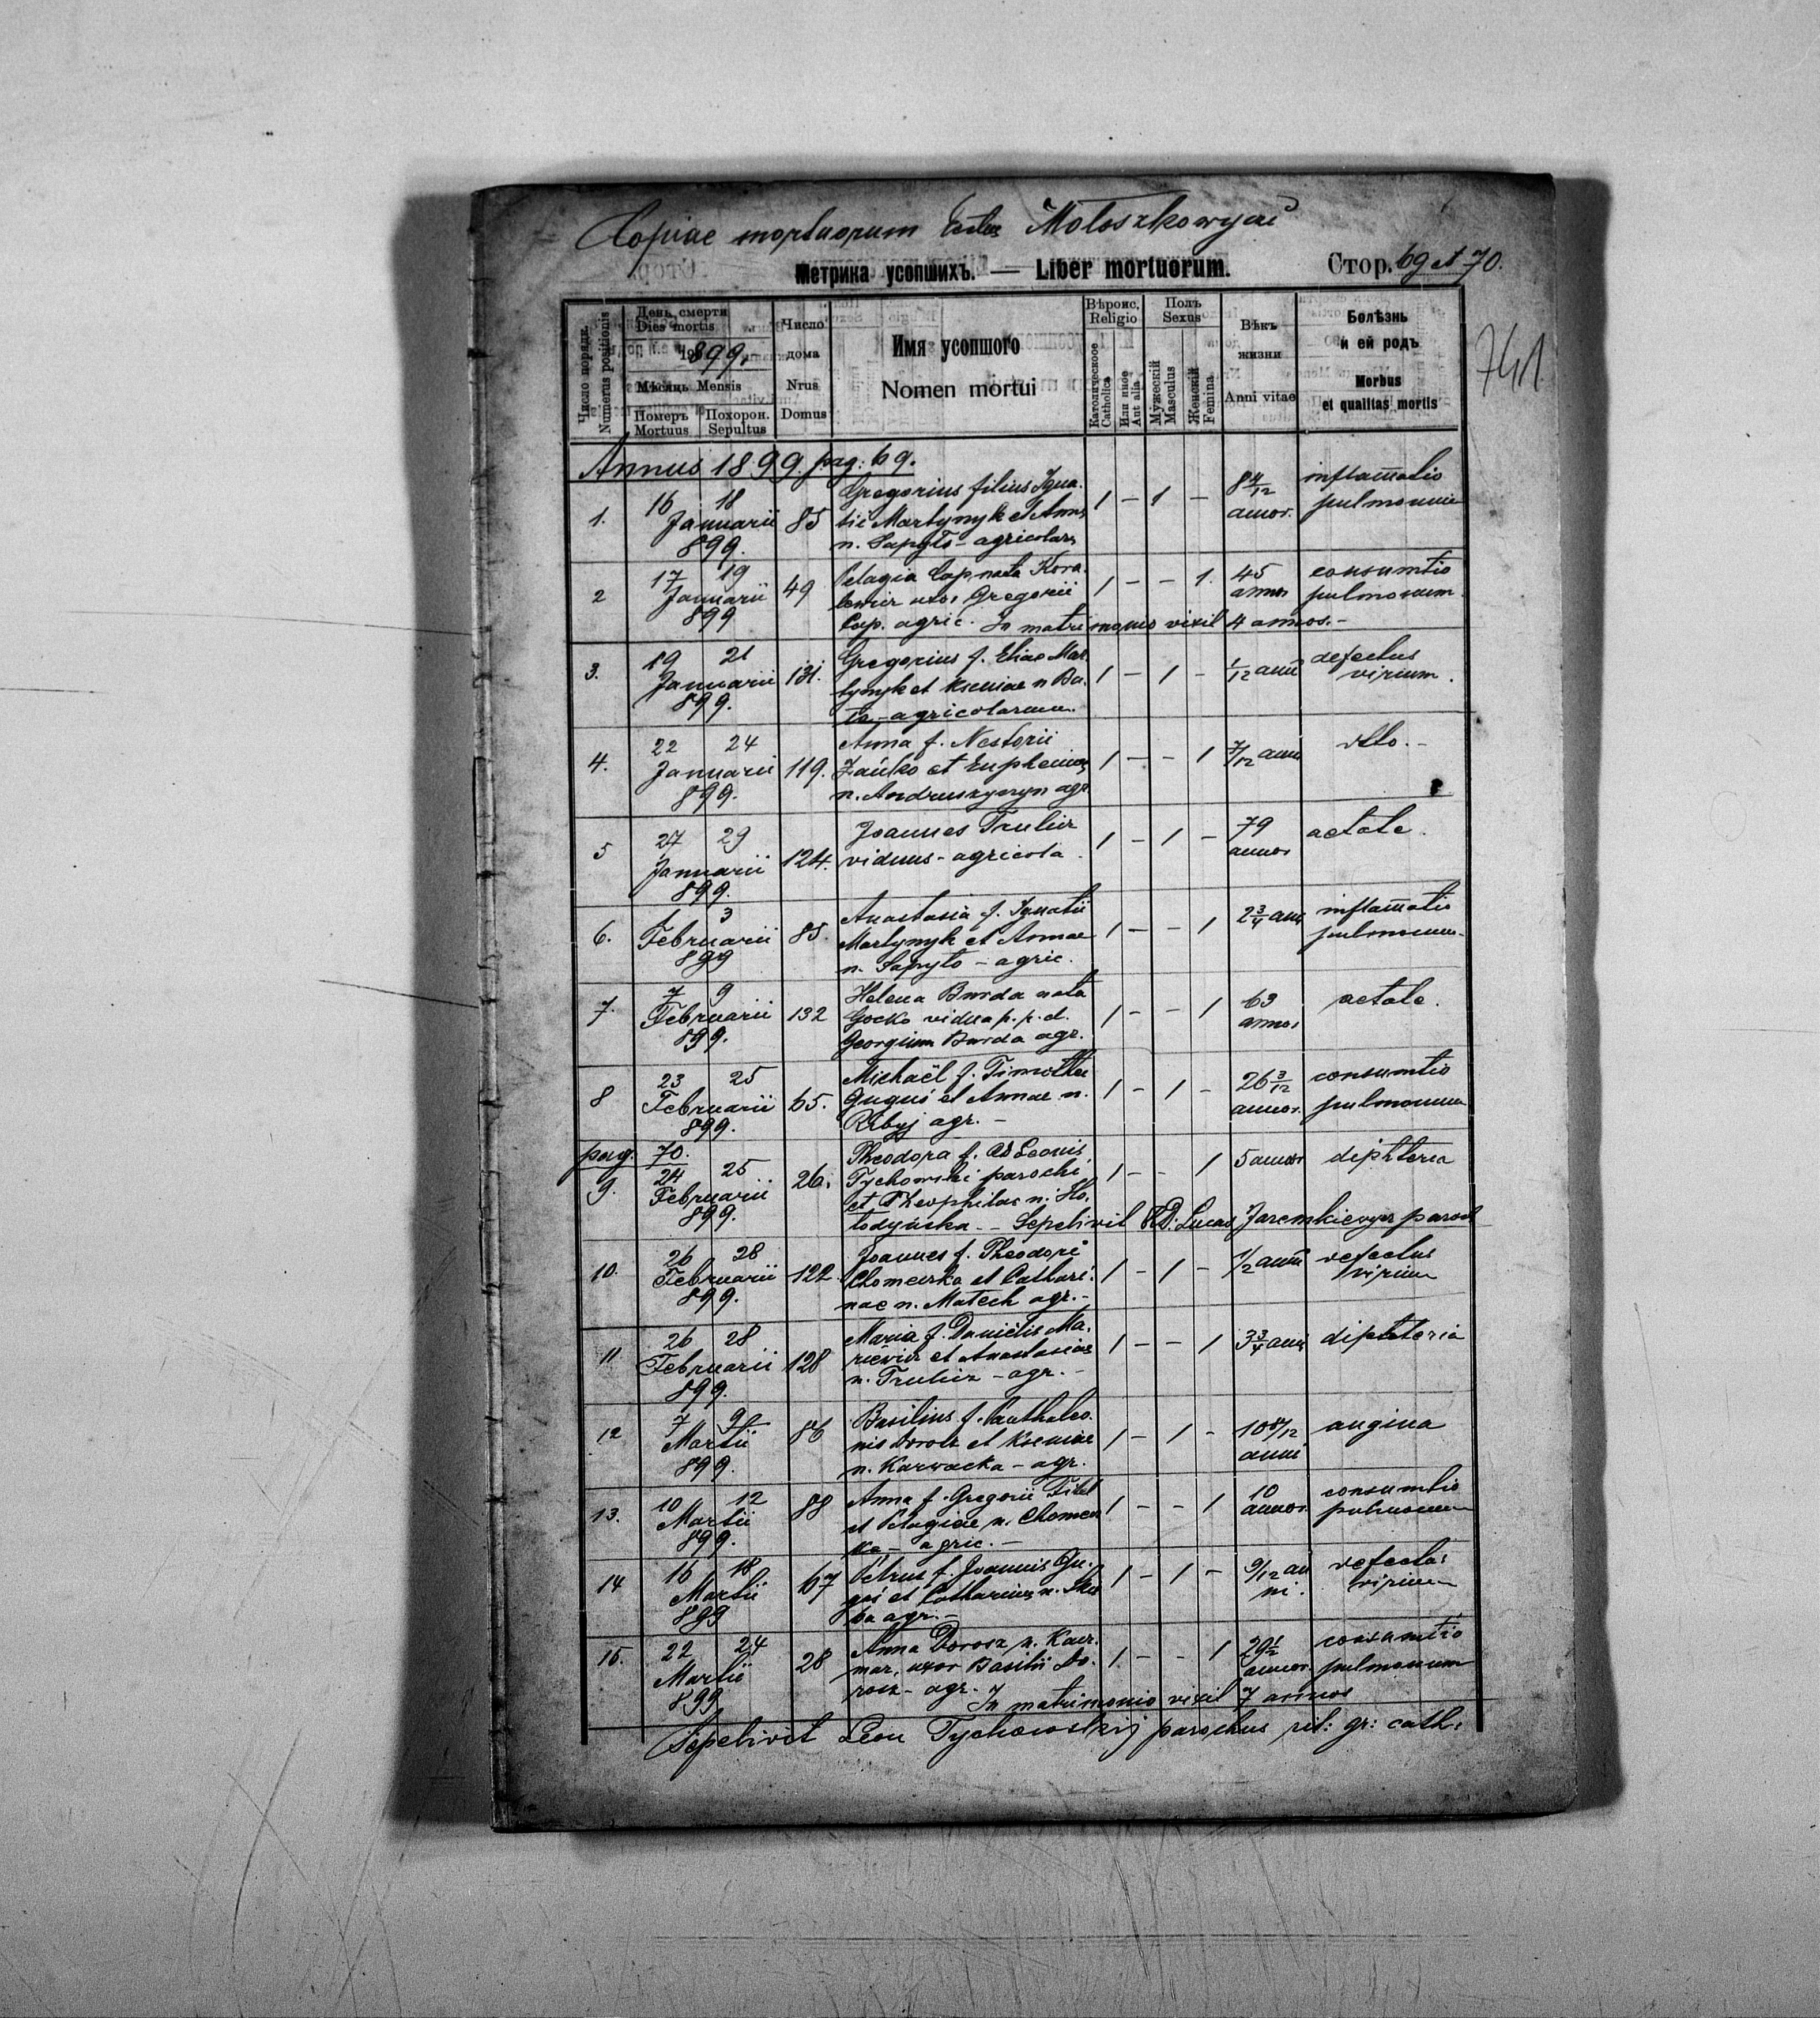 Copiae mortuorum Moloszkowyci
Метрика усопшихъ. — Liber mortuorum.
Стор. 69 et 70.
741
Число порядк. Numerus positionis
День смерти
Dies mortis
1899.
Мѣсяцъ Mensis
Померъ Mortuus
Похорон. Sepultus
Число дома
Nrus Domus
Имя усопшого
Nomen mortui
Вѣроис. Religio
Католическоое Catholica
Или иное Aut alia
Полъ Sexus
Мужескій Masculus
Женскій Femina
Вѣкъ жизни
Anni vitae
Болѣзнь и ей родъ
Morbus et qualitas mortis
Annus 1899. pag: 69.
1. 16 18 Januarii 899. 85
Gregorius filius Igna-
tii Martynyk et Annae
n. Sapyło - agricolarum
1 - 1 - 8 4/12 annor. inflamatio pulmonum
2 17 19 Januarii 899 49
Pelagia Cap nata Kova-
lewicz uxor Gregorii
Cap. agric. In matrimonio vixit 4 annos.-
1 - - 1. 45 annos consumtio pulmonum.
3. 19 21 Januarii 899. 131.
Gregorius f. Eliae Mar-
tynyk et Kseniae n Ba-
ła - agricolarum.
1 - 1 - 1/12 anni defectus virium.
4. 22 24 Januarii 899. 119.
Anna f. Nestorii
Zańko et Euphemiae
n. Andruszyszyn agr
1 - - 1 7/12 anni dtto.-
5 27 29 Januarii 899. 124.
Joannes Trulicz
viduus - agricola.
1 - 1 - 79 annos aetate.
6. 1 3 Februarii 899 85.
Anastasia f. Ignatii
Martynyk et Annae
n. Sapyło - agric.
1 - - 1 2 3/4 anni inflamatio pulmonum.
7. 7 9 Februarii 899. 132
Helena Burda nata
Gocko vidua p. p. d.
Georgium Burda agr.
1 - - 1 63 annos aetate.
8 23 25 Februarii 899. 65.
Michaël f. Timothei
Guguś et Annae n.
agr. -
1 - 1 - 26 3/12 annor. consumtio pulmonum
pag. 70.
9. 24 25 Februarii 899. 26.
Theodora f. Leonis
Tychowski parochi
et Theophilae n. Ho-
łodyńska. - Sepelivit R.D. Lucas Jaremkievycz paroch
1 - - 1 5 annor diphteria
10. 26 28 Februarii 899. 122.
Joannes f. Theodori
Chomeńka et Cathari-
nae n. Matech agr. -
1 - 1 - 1/2 anni defectus virium
11 26 28 Februarii 899. 128
Maria f. Daniëlis Ma-
riëvicz et Anastasiae
n. Trulicz - agr. -
1 - - 1 3 3/4 anni diphteria
12 7 9 Martii 899. 86
Basilius f. Panthaleo-
nis Dorosz et Kseniae
n. Karvacka - agr.
1 - 1 - 10 8/12 anni angina
13. 10 12 Martii 899. 88
Anna f. Gregorii
et Pelagiae n. Chomeń
ka - agric. -
1 - - 1 10 annor. consumtio pulmonum
14 16 18 Martii 899 67
Petrus f. Joannis Gu-
guś et Catharinae n.
ba agr. -
1 - 1 - 9/12 an ni. defectus virium
15. 22 24 Martii 899 28
Anna Dorosz n. Kacz-
mar, uxor Basilii Do-
rosz - agr. In matrimonio vixit 7 annos
1. - - 1 29 1/2 annor. consumtio pulmonum
Sepelivit Leon Tychowskij parochus rit: gr: cath: